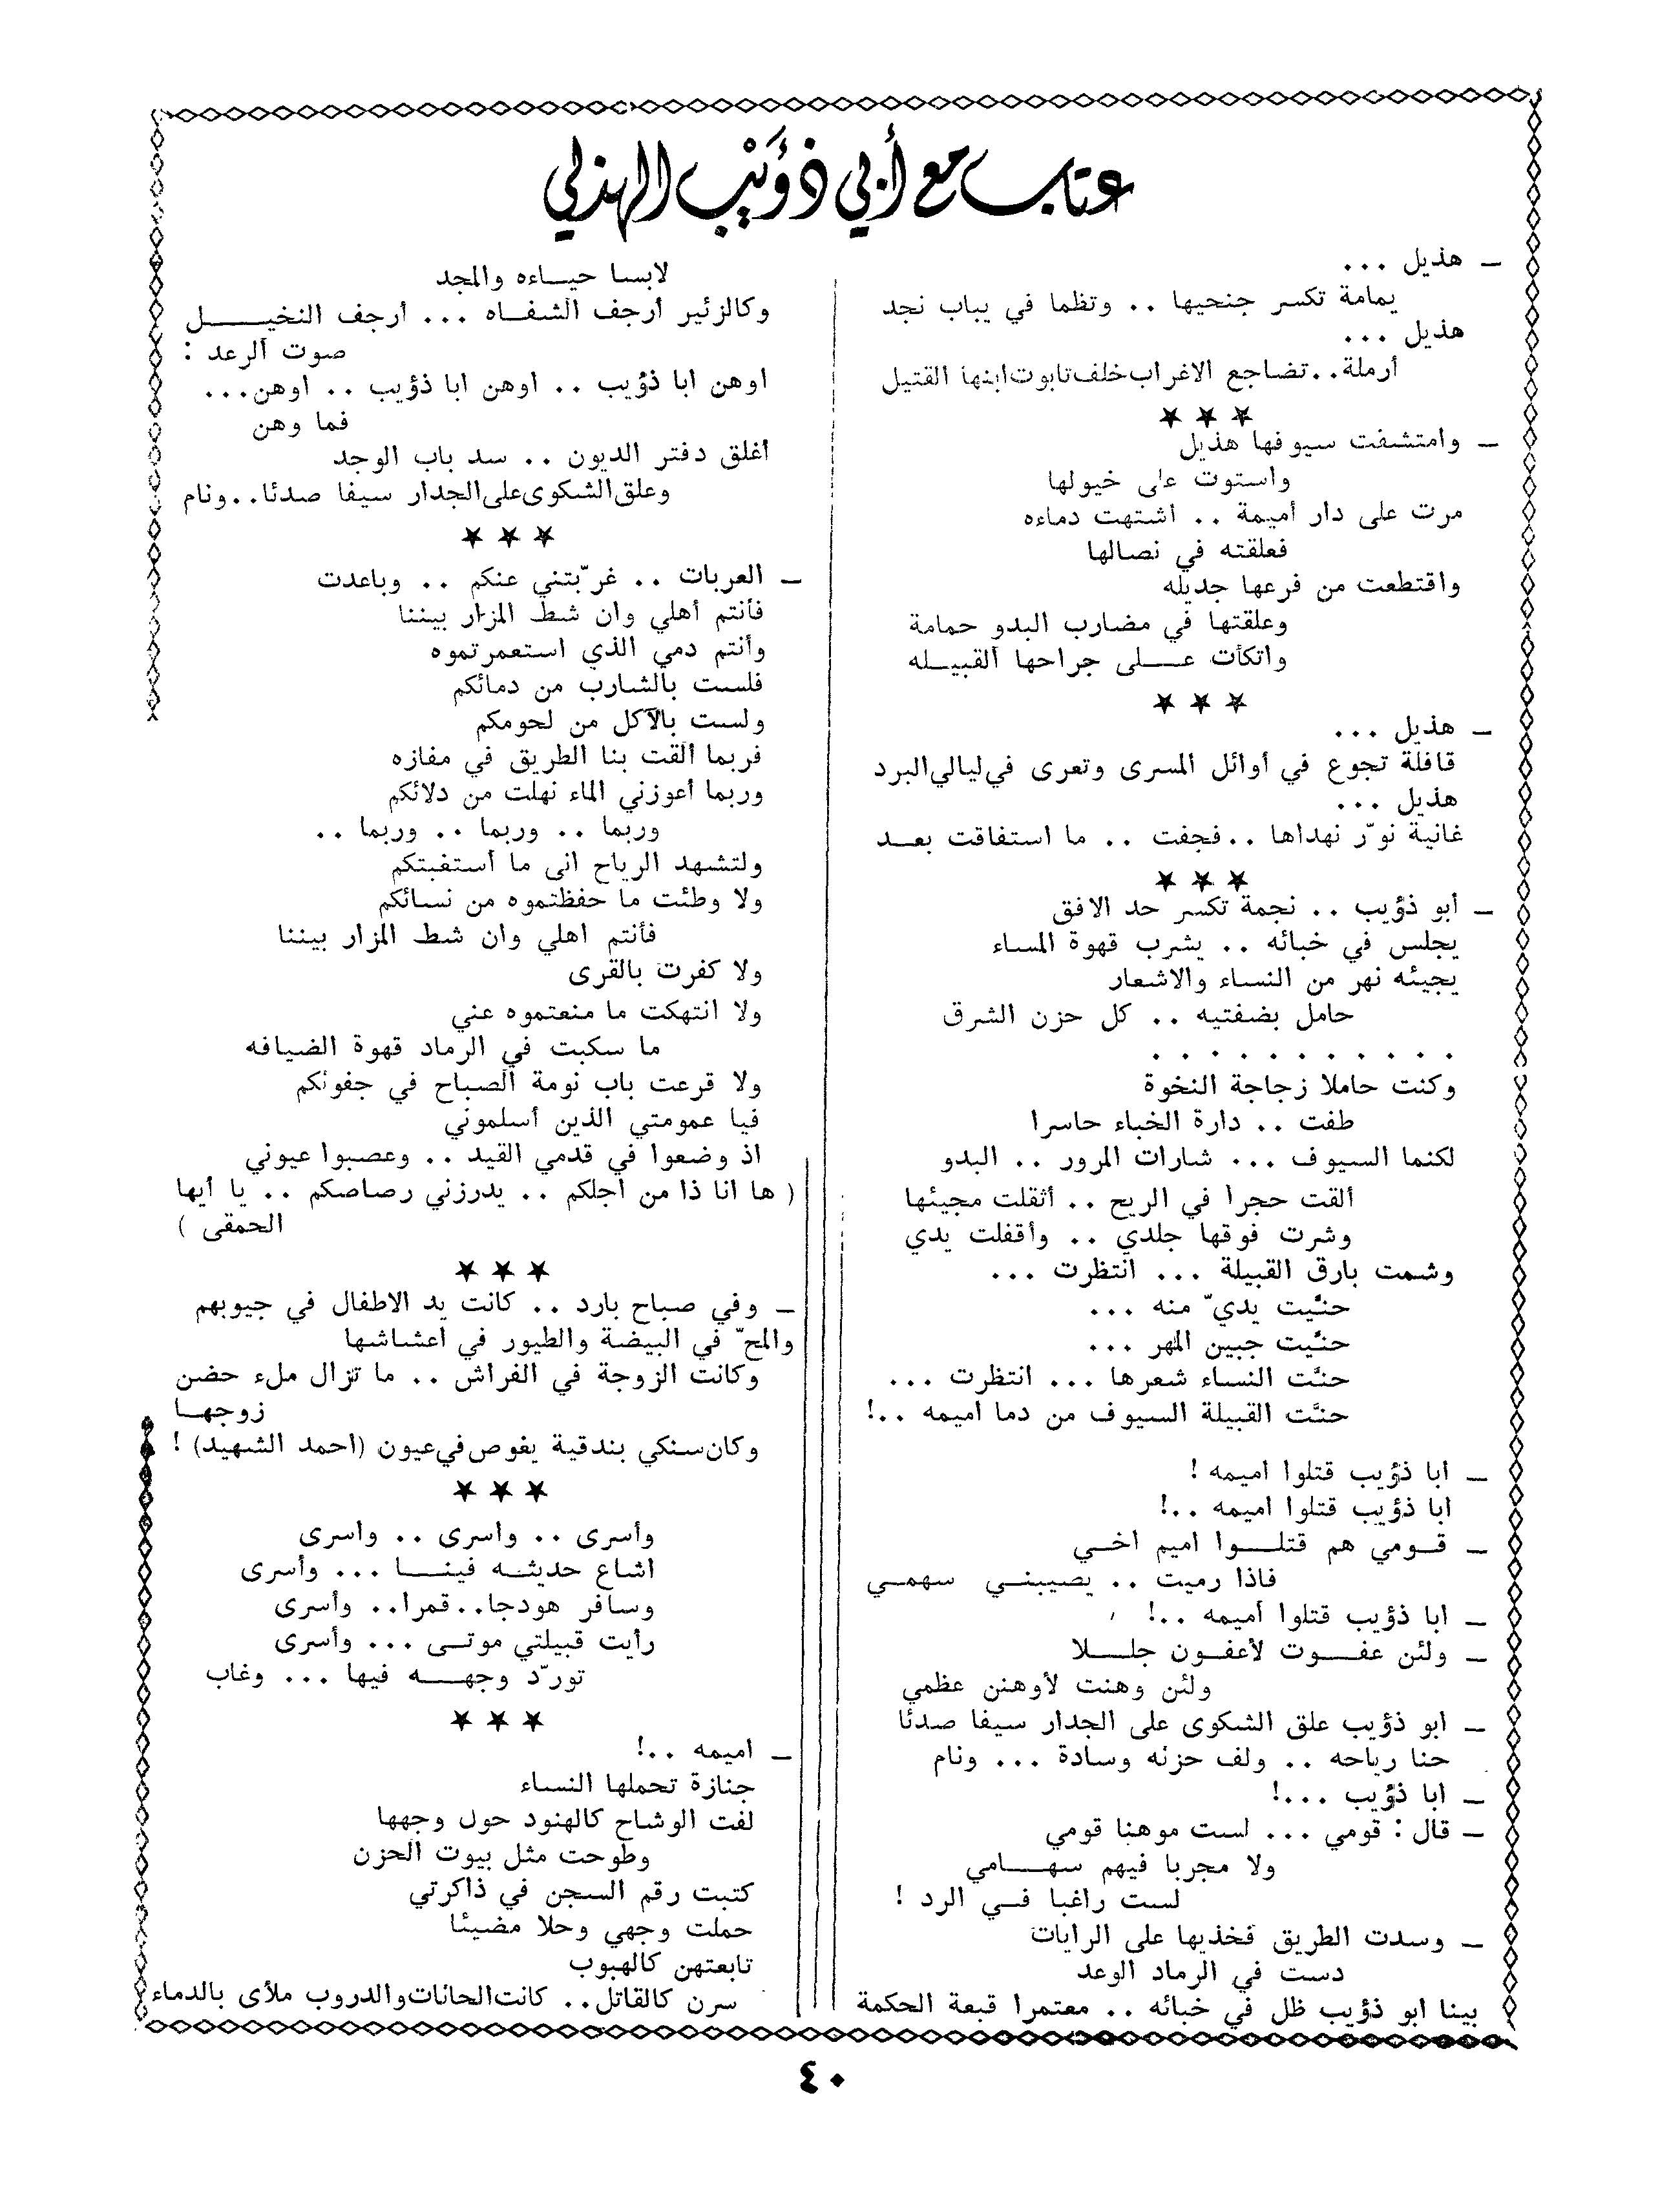 عتاب مع أبي ذُؤَيْب الهذلي
ـ هذيل ...
يمامة تكسر جنحيها .. وتظما في يباب نجد
هذيل ...
أرملة.. تضاجع الاغراب خلف تابوت ابنها القتيل
★ ★ ★
ـ وامتشفت سيوفها هذيل
واستوت على خيولها
مرت على دار أميمة .. اشتهت دماءه
فعلقته في نصالها
واقتطعت من فرعها جديله
وعلقتها في مضارب البدو حمامة
واتكأت عـــلى جراحها القبيــله
★ ★ ★
ـ هذيل ...
قافلة تجوع في أوائل المسرى وتعرى في ليالي البرد
هذيل ...
غانية نوّر نهداها .. فجفت .. ما استفاقت بعـد
★ ★ ★
ـ أبو ذؤيب .. نجمة تكسر حد الافق
يجلس في خبائه .. يشرب قهوة المساء
يجيئه نهر من النساء والاشعار
حامل بضفتيه .. كل حزن الشرق
. . . . . . . . . . .
وكنت حاملا زجاجة النخوة
طفت .. دارة الخباء حاسرا
لكنما السيوف ... شارات المرور .. البدو
ألقت حجرا في الريح .. أثقلت مجيئها
وشرت فوقها جلدي .. وأقفلت يدي
وشمت بارق القبيلة ... انتظرت ...
حنّيت يديّ منه ...
حنّيت جبين المهر ...
حنّت النساء شعرها ... انتظرت ...
حنّت القبيلة السيوف من دما اميمه ..!
ـ ابا ذؤيب قتلوا اميمه !
ابا ذؤيب قتلوا اميمه ..!
ـ قـومي هم قتلـــوا اميم اخـي
فاذا رميت .. يصيبنـي سهمـي
ـ ابا ذؤيب قتلوا أميمه ..!
ـ ولئن عفـــوت لأعفـون جلـــلا
ولئن وهنت لأوهنن عظمي
ـ ابو ذؤيب علق الشكوى على الجدار سيفا صدئا
حنا رياحه .. ولف حزنه وسادة ... ونام
ـ ابا ذؤيب ...!
ـ قال : قومي ... لست موهنا قومي
ولا مجربا فيهم سهـــامي
لست راغبا فـي الرد !
ـ وسدت الطريق فخذيها على الرايات
دست في الرماد الوعد
بينا ابو ذؤيب ظل في خبائه .. معتمرا قبعة الحكمة
لابسا حيـاءه والمجد
وكالزئير أرجف الشفـاه ... أرجف النخيـــل
صوت الرعد :
اوهن ابا ذؤيب .. اوهن ابا ذؤيب .. اوهن...
فما وهن
أغلق دفتر الديون .. سد باب الوجد
وعلق الشكوى على الجدار سيفا صدئا.. ونام
★ ★ ★
ـ العربات .. غرّبتني عنكم .. وباعدت
فأنتم أهلي وان شط المزار بيننا
وأنتم دمي الذي استعمرتموه
فلست بالشارب من دمائكم
ولست بالآكل من لحومكم
فربما ألقت بنا الطريق في مفازه
وربما أعوزني الماء نهلت من دلائكم
وربما .. وربما .. وربما ..
ولتشهد الرياح انى ما أستغبتكم
ولا وطئت ما حفظتموه من نسائكم
فأنتم اهلي وان شط المزار بيننا
ولا كفرت بالقرى
ولا انتهكت ما منعتموه عني
ما سكبت في الرماد قهوة الضيافه
ولا قرعت باب نومة الصباح في جفونكم
فيا عمومتي الذين أسلموني
اذ وضعوا في قدمي القيد .. وعصبوا عيوني
( ها انا ذا من اجلكم .. يدرزني رصاصكم .. يا أيها
الحمقى )
★ ★ ★
ـ وفي صباح بارد .. كانت يد الاطفال في جيوبهم
والمحّ في البيضة والطيور في اعشاشها
وكانت الزوجة في الفراش .. ما تزال ملء حضن
زوجهـا
وكان سنكي بندقية يغوص في عيون (احمد الشهيد) !
★ ★ ★
وأسرى .. واسرى .. واسرى
اشاع حديثـه فينــا ... وأسرى
وسافر هودجا.. قمرا.. وأسرى
رأيت قبيلتي موتـى ... وأسرى
تورّد وجهـــه فيها ... وغاب
★ ★ ★
ـ اميمه ..!
جنازة تحملها النساء
لفت الوشاح كالهنود حول وجهها
وطوحت مثل بيوت الحزن
كتبت رقم السجن في ذاكرتي
حملت وجهي وحلا مضيئا
تابعتهن كالهبوب
سرن كالقاتل.. كانت الحانات والدروب ملأى بالدماء
٤٠